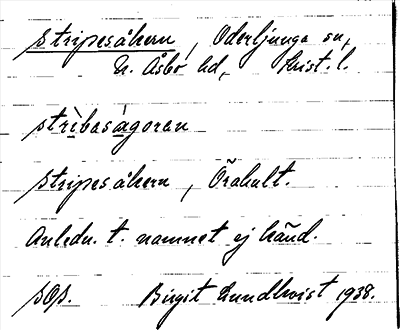 Stripesåkern, Oderljunga sn,
N. Åsbo hd, Krist. l.
strìbasågoran
Stripesåkern, Örahult.
Anledn. t. namnet ej känd.
sOs. Birgit Lundkvist 1938.